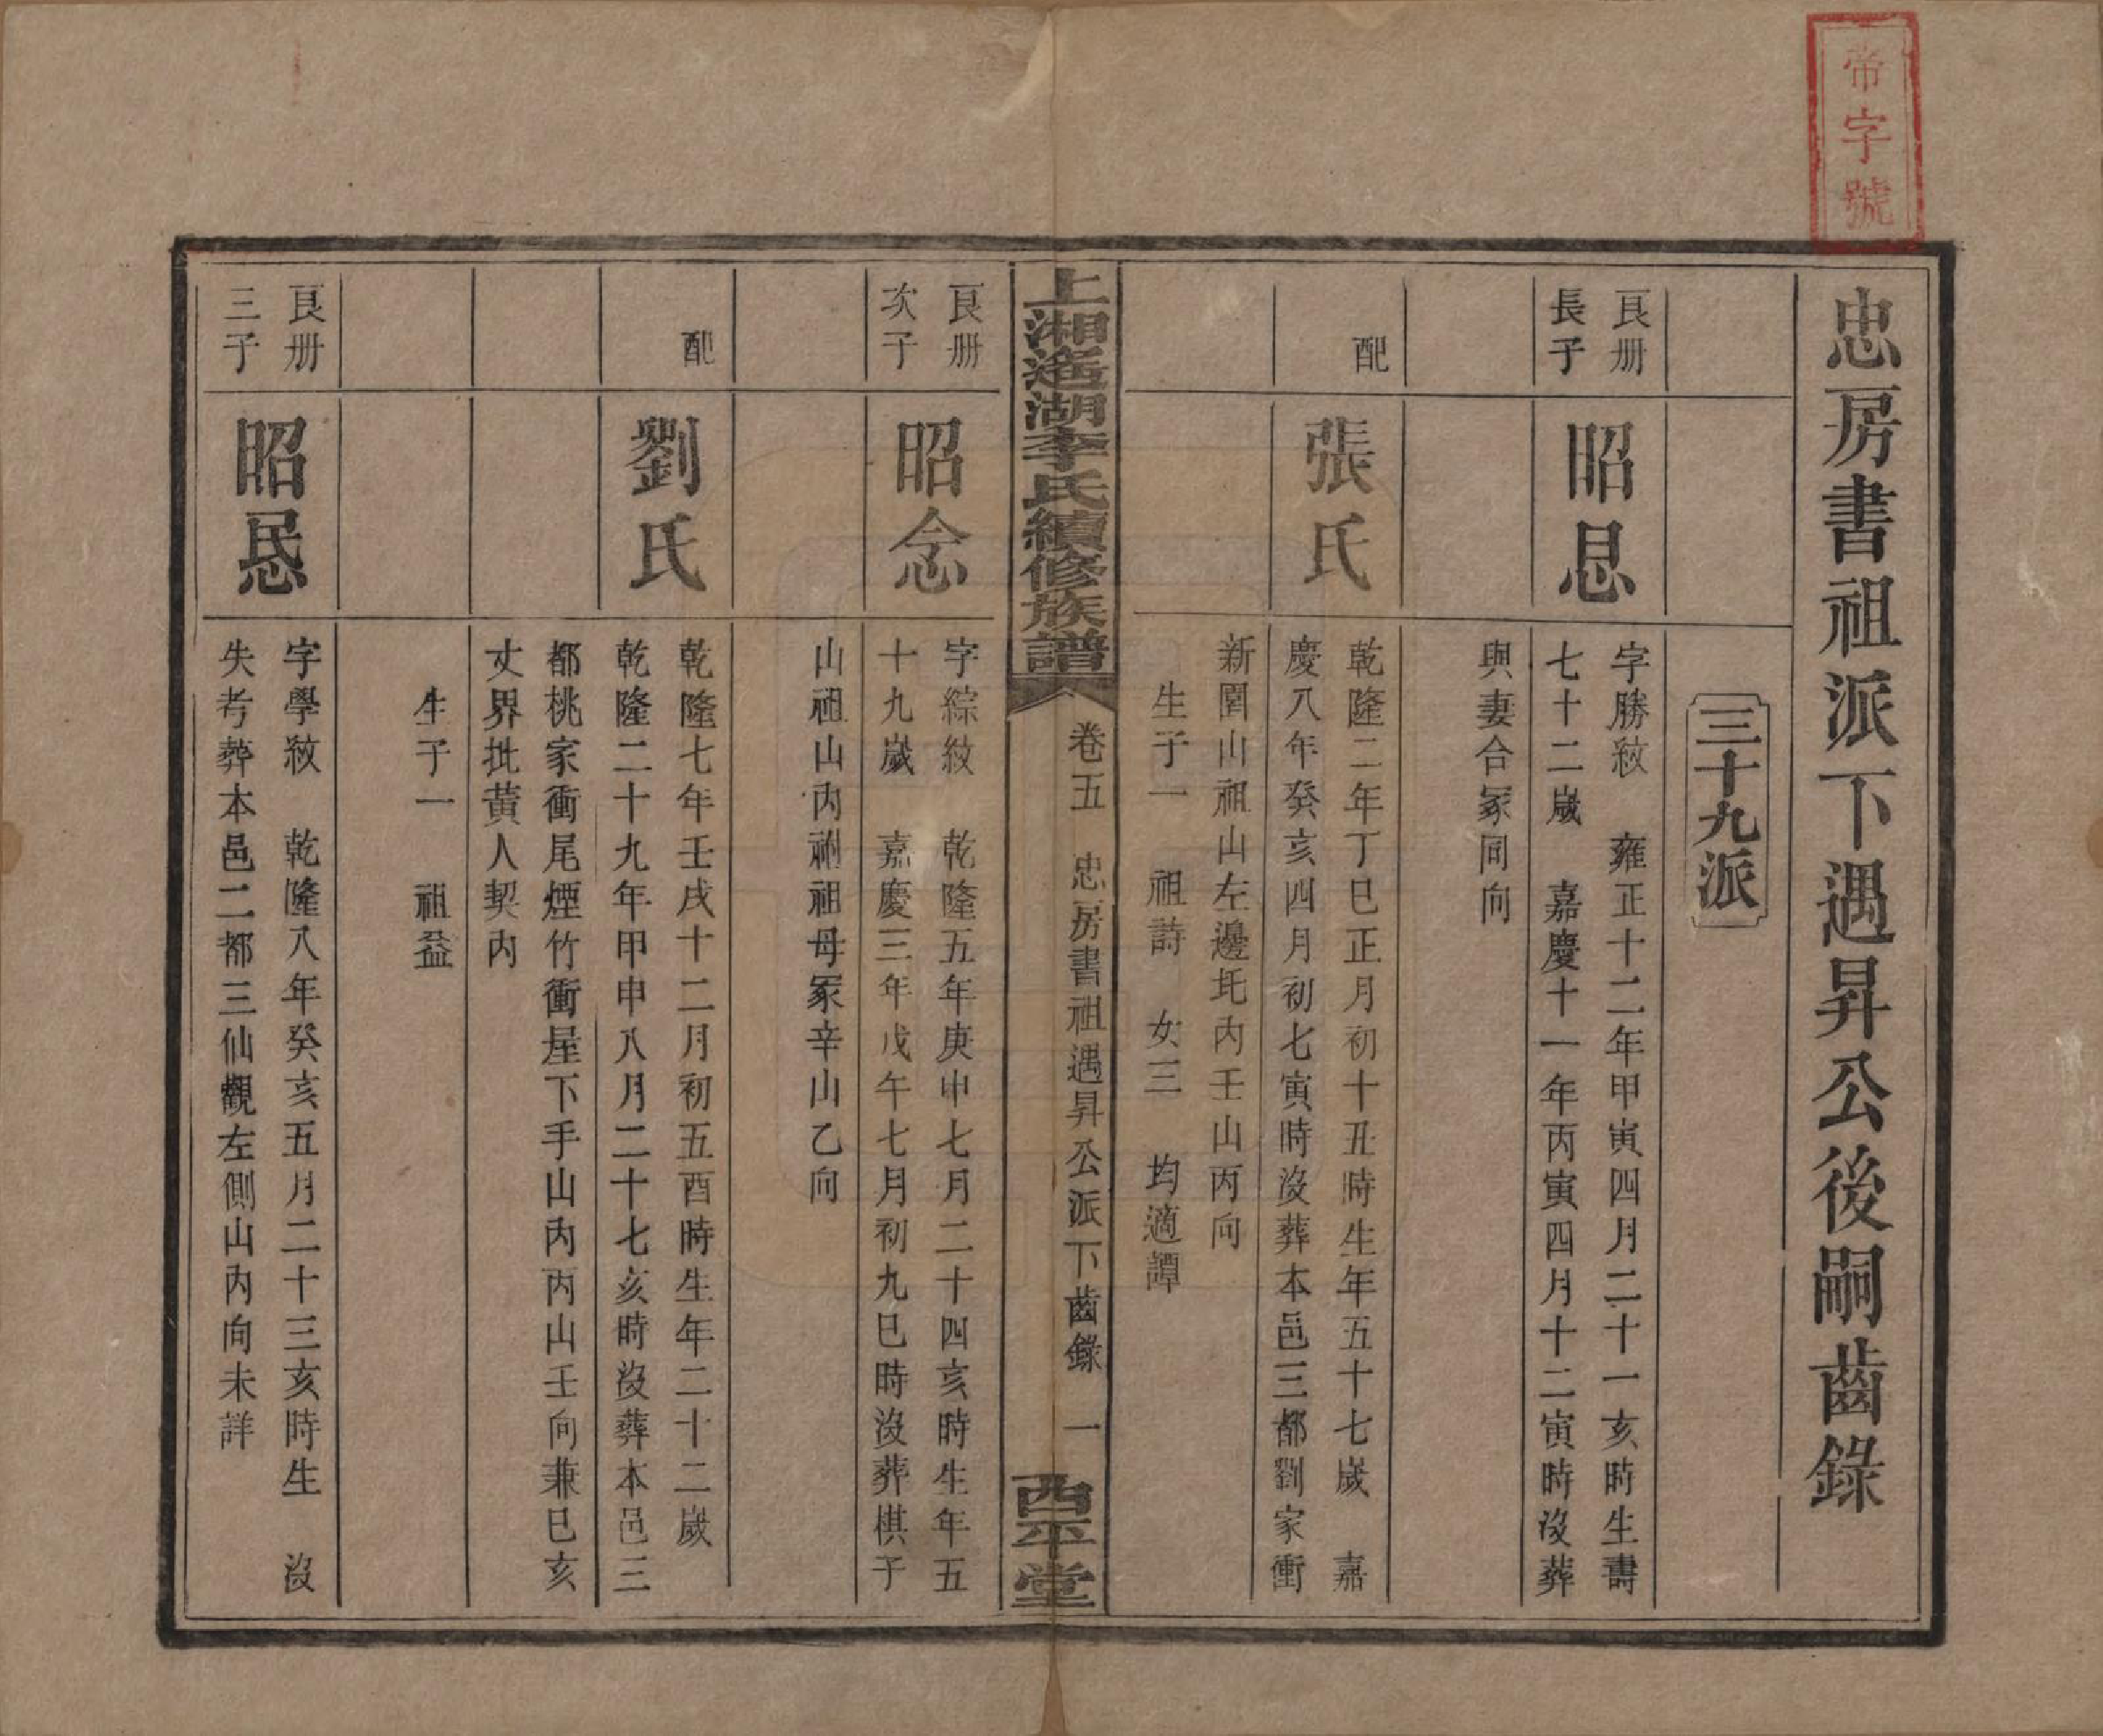 帝字號
忠房書祖派下遇昇公後嗣齒錄
三十九派
良冊
長子
昭恳
字勝紋 雍正十二年甲寅四月二十一亥時生壽
七十二歲 嘉慶十一年丙寅四月十二寅時沒葬
與妻合冢同向
配
張氏
乾隆二年丁巳正月初十丑時生年五十七歲 嘉
慶八年癸亥四月初七寅時沒葬本邑三都劉家衝
新園山祖山左邊坉內壬山丙向
生子一 祖詩 女三 均適譚
上湘遙湖李氏續修族譜
卷五 忠房書祖遇昇公派下齒錄 一
西平堂
良冊
次子
昭念
字綜紋 乾隆五年庚申七月二十四亥時生年五
十九歲 嘉慶三年戊午七月初九巳時沒葬棋子
山祖山內祔祖母冢辛山乙向
配
劉氏
乾隆七年壬戌十二月初五酉時生年二十二歲
乾隆二十九年甲申八月二十七亥時沒葬本邑三
都桃家衝尾煙竹衝屋下手山內丙山壬向兼巳亥
丈界批黃人契內
生子一 祖益
良冊
三子
昭恳
字學紋 乾隆八年癸亥五月二十三亥時生 沒
失考葬本邑二都三仙觀左側山內向未詳